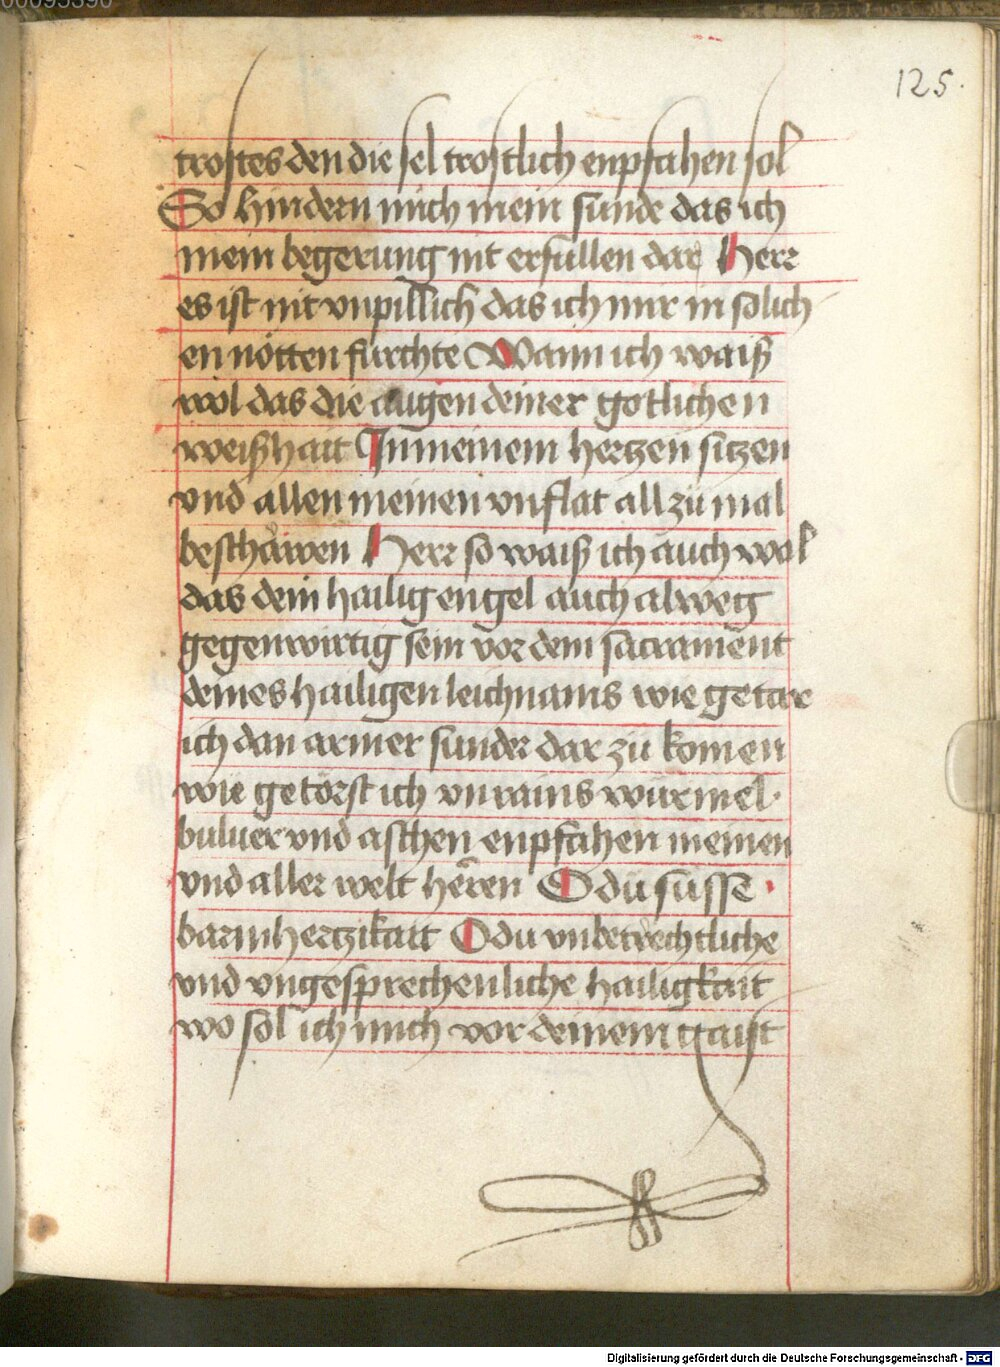 00095390
125.
trostes den die sel trostlich enpfahen sol
So hindern mich mein sunde das ich
mein begerung nit erfullen dar Herr
es ist nit vnpillich das ich mir in solich
en nötten furchte Wann ich waiß
wol das die augen deiner gotlichen
weißhait In meinem hertzen sitzen
vnd allen meinen vnflat all zů mal
beschawen Herr so waiß ich auch wol
das dein hailig engel auch alweg
gegenwirtig sein vor dem sacrament
deines hailigen leichnams wie getar
ich dan armer sunder dar zů komen
wie getörst ich vnrains würmel
buluer vnd aschen enpfahen meinen
vnd aller welt herren O du süsse
barmhertzikait O du vnbetrechtliche
vnd vngesprechenliche hailigkait
wo sol ich mich vor deinem gaist
Digitalisierung gefördert durch die Deutsche Forschungsgemeinschaft - DFG